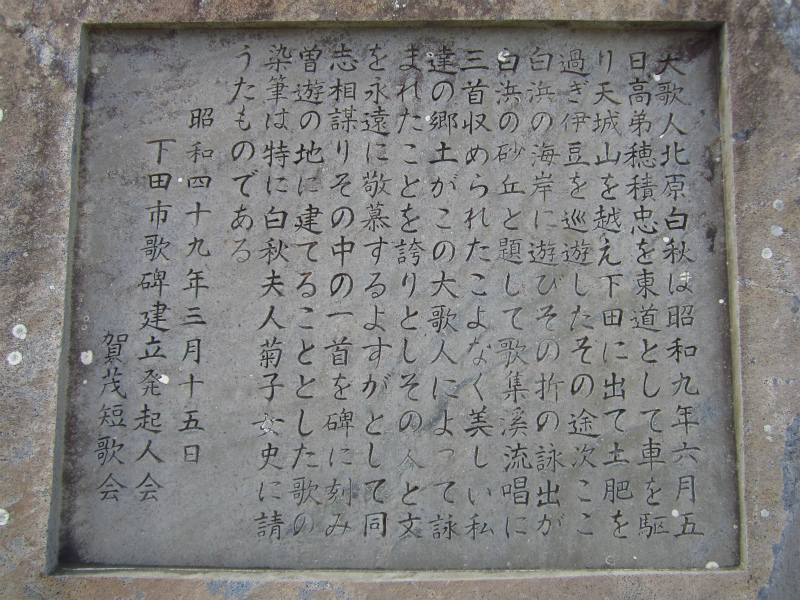 大歌人北原白秋は昭和九年六月五
日高弟穂積忠を東道として車を駆
り天城山を越え下田に出て土肥を
過ぎ伊豆を巡遊したその途次ここ
白浜の海岸に遊びその折の詠出が
白浜の砂丘と題して歌集溪流唱に
三首収められたこよなく美しい私
達の郷土がこの大歌人によって詠
まれたことを誇りとしその人と文
を永遠に敬慕するよすがとして同
志相謀りその中の一首を碑に刻み
曽遊の地に建てることとした歌の
染筆は特に白秋夫人菊子女史に請
うたものである
昭和四十九年三月十五日
下田市歌碑建立発起人会
賀茂短歌会